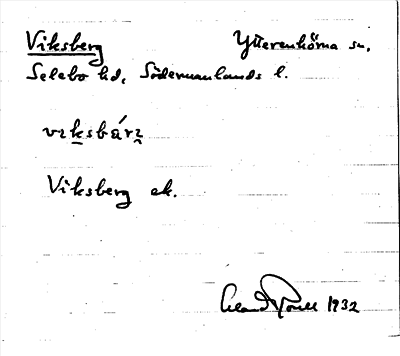 Viksberg Ytterenhörna sn.
Selebo hd, Södermanlands l.
Viksberg ek.
1932